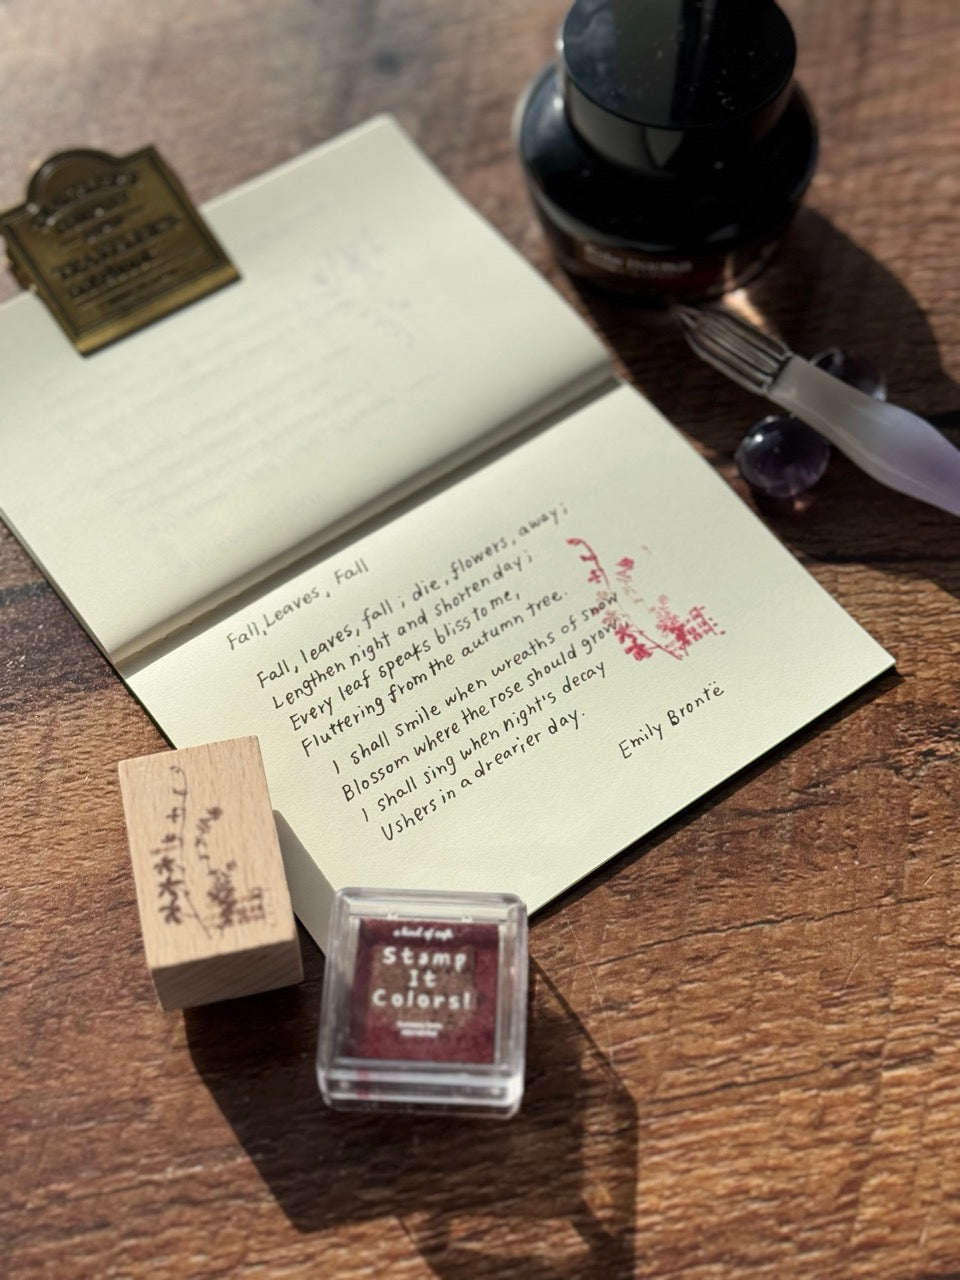 TRAVELER'S
Fall, Leaves, Fall
Fall, leaves, fall; die, flowers, away;
Lengthen night and shorten day;
Every leaf speaks bliss to me,
Fluttering from the autumn tree.
I shall smile when wreaths of snow
Blossom where the rose should grow;
I shall sing when night's decay
Ushers in a drearier day.
Emily Brontë
Stamp
It
Colors!